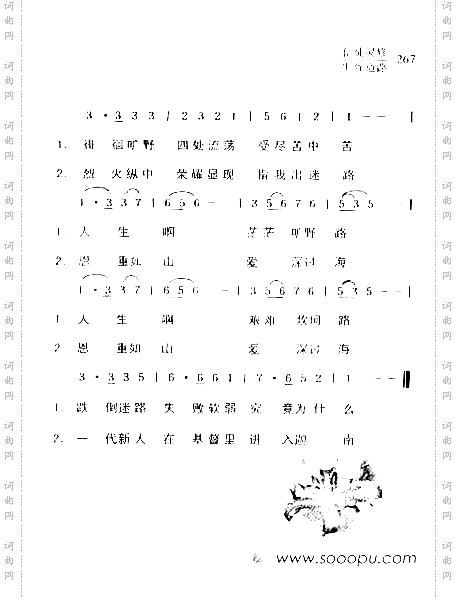 267
3 · 3 3 3 | 2 3 2 1 | 5 6 1 | 2 | 1 - - |
1. 宿旷野 四处流荡 受尽苦中 苦
2. 烈 火纵中 荣耀显现 指我出迷 路
1 · 3 3 7 | 6 5 6 - | 3 5 6 7 6 | 5 3 5 - |
1. 人 生 啊 茫茫 旷野 路
2. 恩 重如 山 爱 深过 海
1 · 3 3 7 | 6 5 6 - | 3 5 6 7 6 | 5 3 5 - - |
1. 人 生 啊 艰难 坎坷 路
2 恩 重如 山 爱 深过 海
3 · 3 3 5 | 6 · 6 6 1 | 7 · 6 5 2 | 1 - -
1. 跌 倒迷路 失 败软弱 究 竟为什 么
2. 一 代新人 在 基督里 进 入迦 南
www.sooopu.com
词曲网
词曲网
词曲网
词曲网
词曲网
词曲网
词曲网
词曲网
词曲网
词曲网